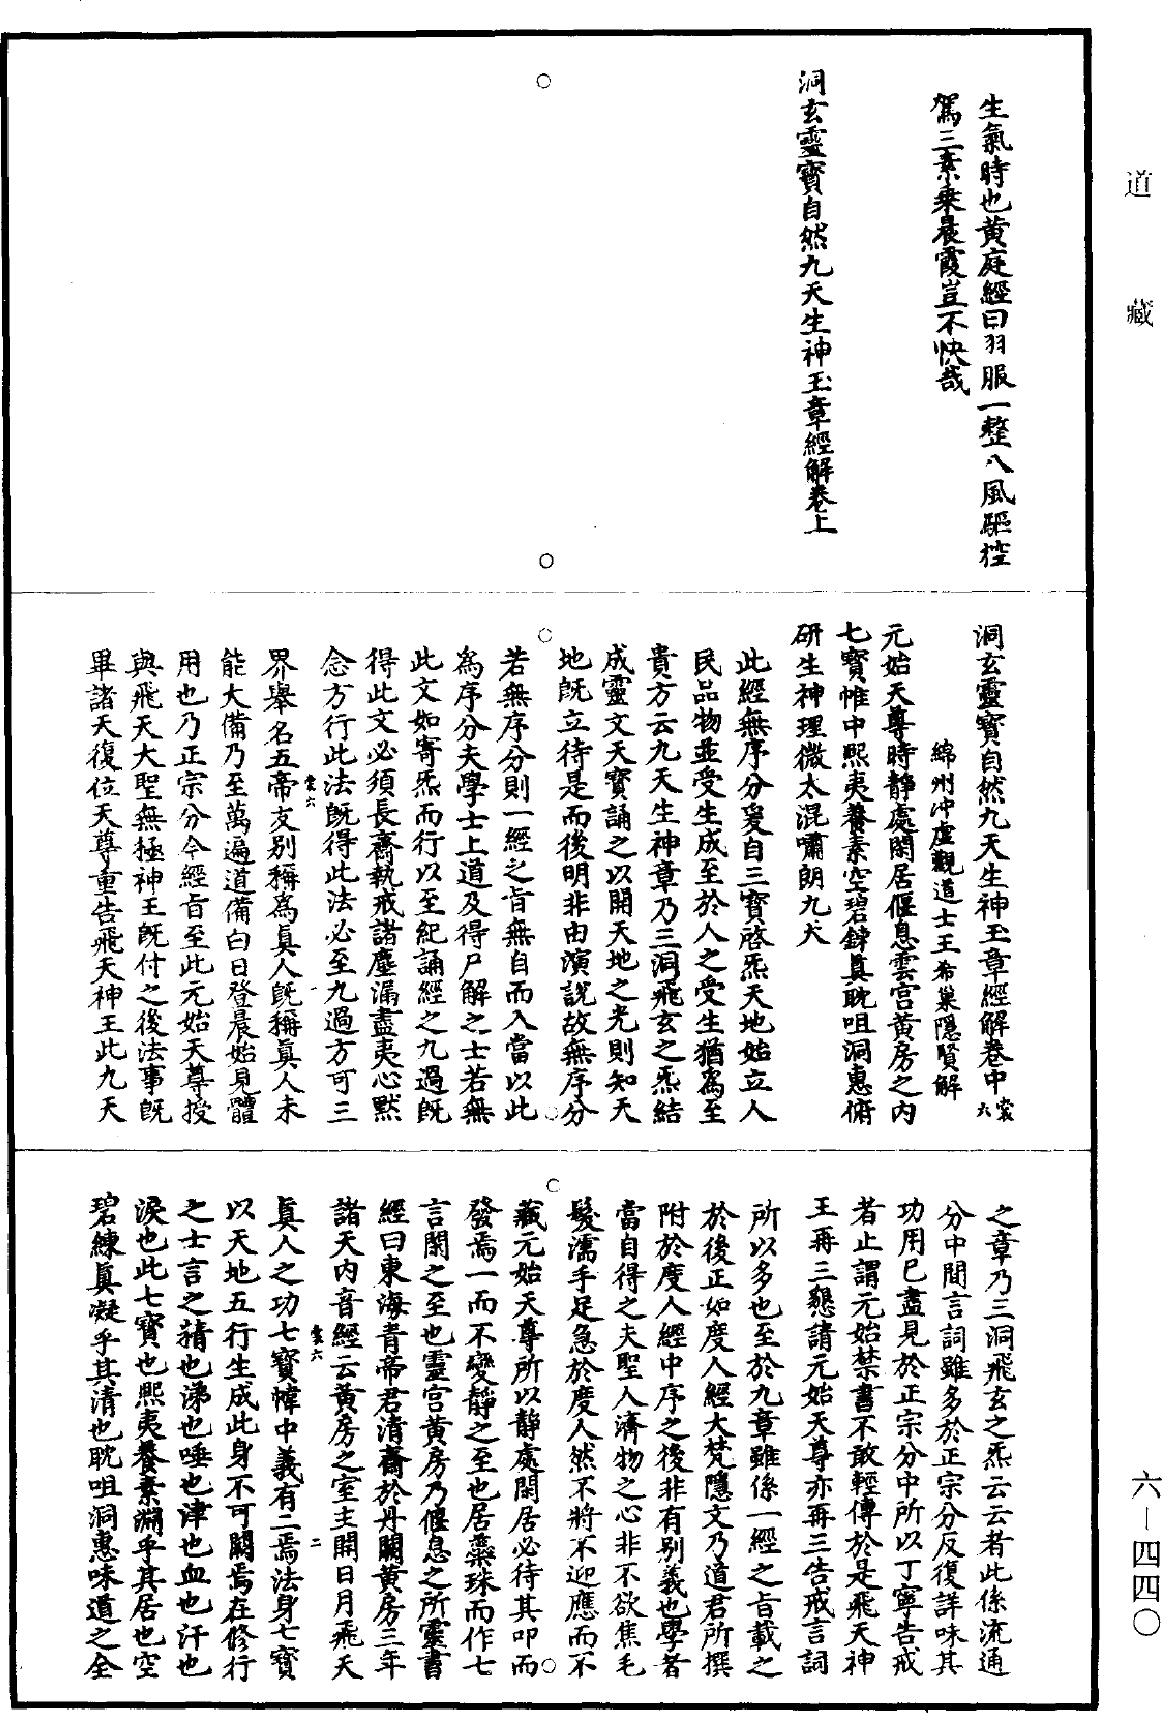 道藏
生氣時也黃庭經曰羽服一整八風驅控
駕三素乘晨霞豈不快哉
洞玄靈寶自然九天生神玉章經解卷上
洞玄靈寶自然九天生神玉章經解卷中 裳六
綿州冲虛觀道士王希巢隱賢解
元始天尊時靜處閑居偃息雲宮黃房之內
七寶帷中熙夷養素空碧鍊真耽咀洞惠俯
研生神理微太混嘯朗九天
此經無序分爰自三寶啓炁天地始立人
民品物並受生成至於人之受生猶為至
貴方云九天生神章乃三洞飛玄之炁結
成靈文天寶誦之以開天地之光則知天
地既立待是而後明非由演說故無序分
若無序分則一經之旨無自而入當以此
為序分夫學士上道及得尸解之士若無
此文如寄炁而行以至紀誦經之九過既
得此文必須長齋執戒諸塵漏盡夷心默
念方行此法既得此法必至九過方可三
裳六
界舉名五帝友別稱為真人既稱真人未
能大備乃至萬遍道備白日登晨始見體
用也乃正宗分今經旨至此元始天尊授
與飛天大聖無極神王既付之後法事既
畢諸天復位天尊重告飛天神王此九天
之章乃三洞飛玄之炁云云者此係流通
分中間言詞雖多於正宗分反復詳味其
功用已盡見於正宗分中所以丁寧告戒
者止謂元始禁書不敢輕傳於是飛天神
王再三懇請元始天尊亦再三告戒言詞
所以多也至於九章雖係一經之旨載之
於後正如度人經大梵隱文乃道君所撰
附於度人經中序之後非有別義也學者
當自得之夫聖人濟物之心非不欲焦毛
髮濡手足急於度人然不將不迎應而不
藏元始天尊所以靜處閑居必待其叩而
發焉一而不變靜之至也居蘂珠而作七
言閑之至也靈宮黃房乃偃息之所靈書
經曰東海青帝君清齋於丹闕黃房三年
諸天內音經云黃房之室主開日月飛天
裳六 二
真人之功七寶幃中義有二焉法身七寶
以天地五行生成此身不可闕焉在修行
之士言之精也涕也唾也津也血也汗也
淚也此七寶也熙夷養素淵乎其居也空
碧練真凝乎其清也耽咀洞惠味道之全
六—四四〇